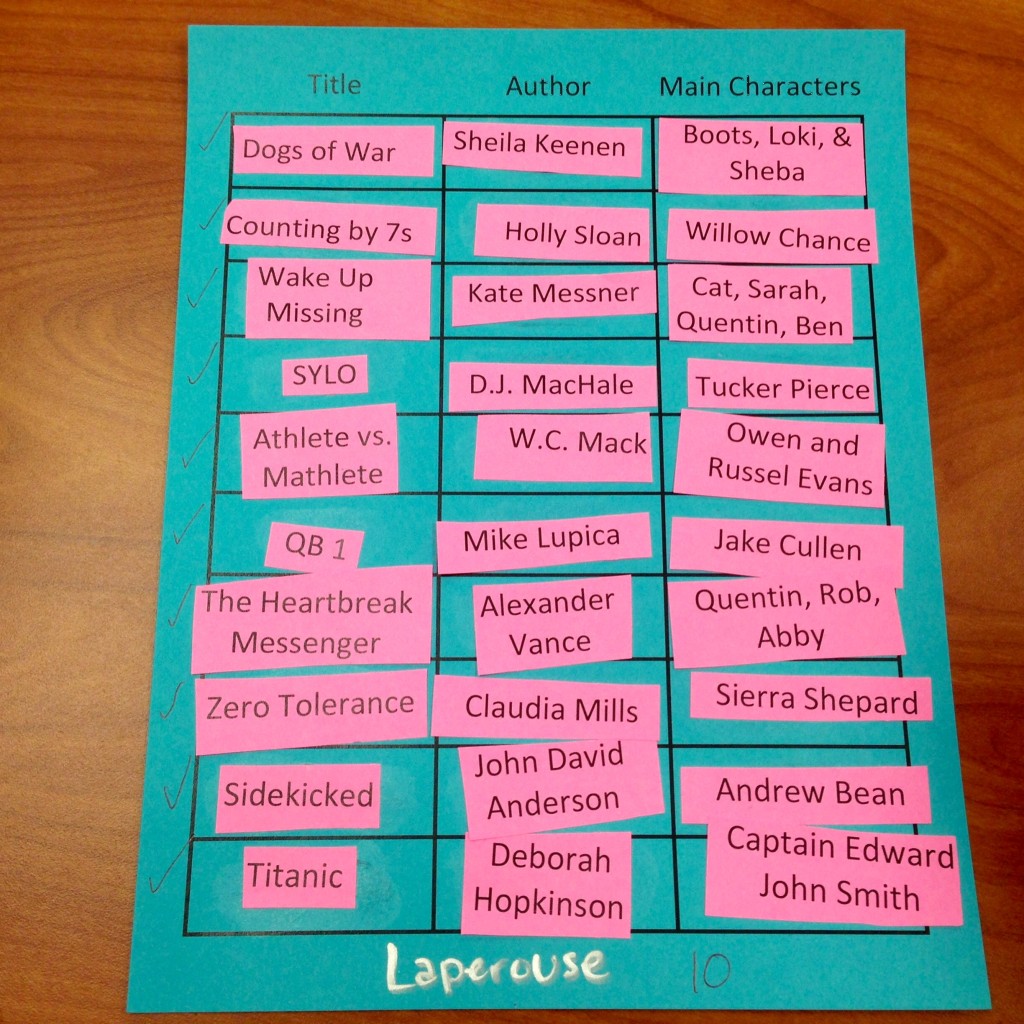 Title Author Main Characters
Dogs of War Sheila Keenen Boots, Loki, &
Sheba
Counting by 7s Holly Sloan Willow Chance
Wake Up
Missing
Kate Messner
Cat, Sarah,
Quentin, Ben
SYLO D.J. MacHale Tucker Pierce
Athlete vs.
Mathlete
W.C. Mack
Owen and
Russel Evans
QB 1 Mike Lupica Jake Cullen
The Heartbreak
Messenger
Alexander
Vance
Quentin, Rob,
Abby
Zero Tolerance Claudia Mills Sierra Shepard
Sidekicked
John David
Anderson
Andrew Bean
Titanic
Deborah
Hopkinson
Captain Edward
John Smith
Laperouse 10